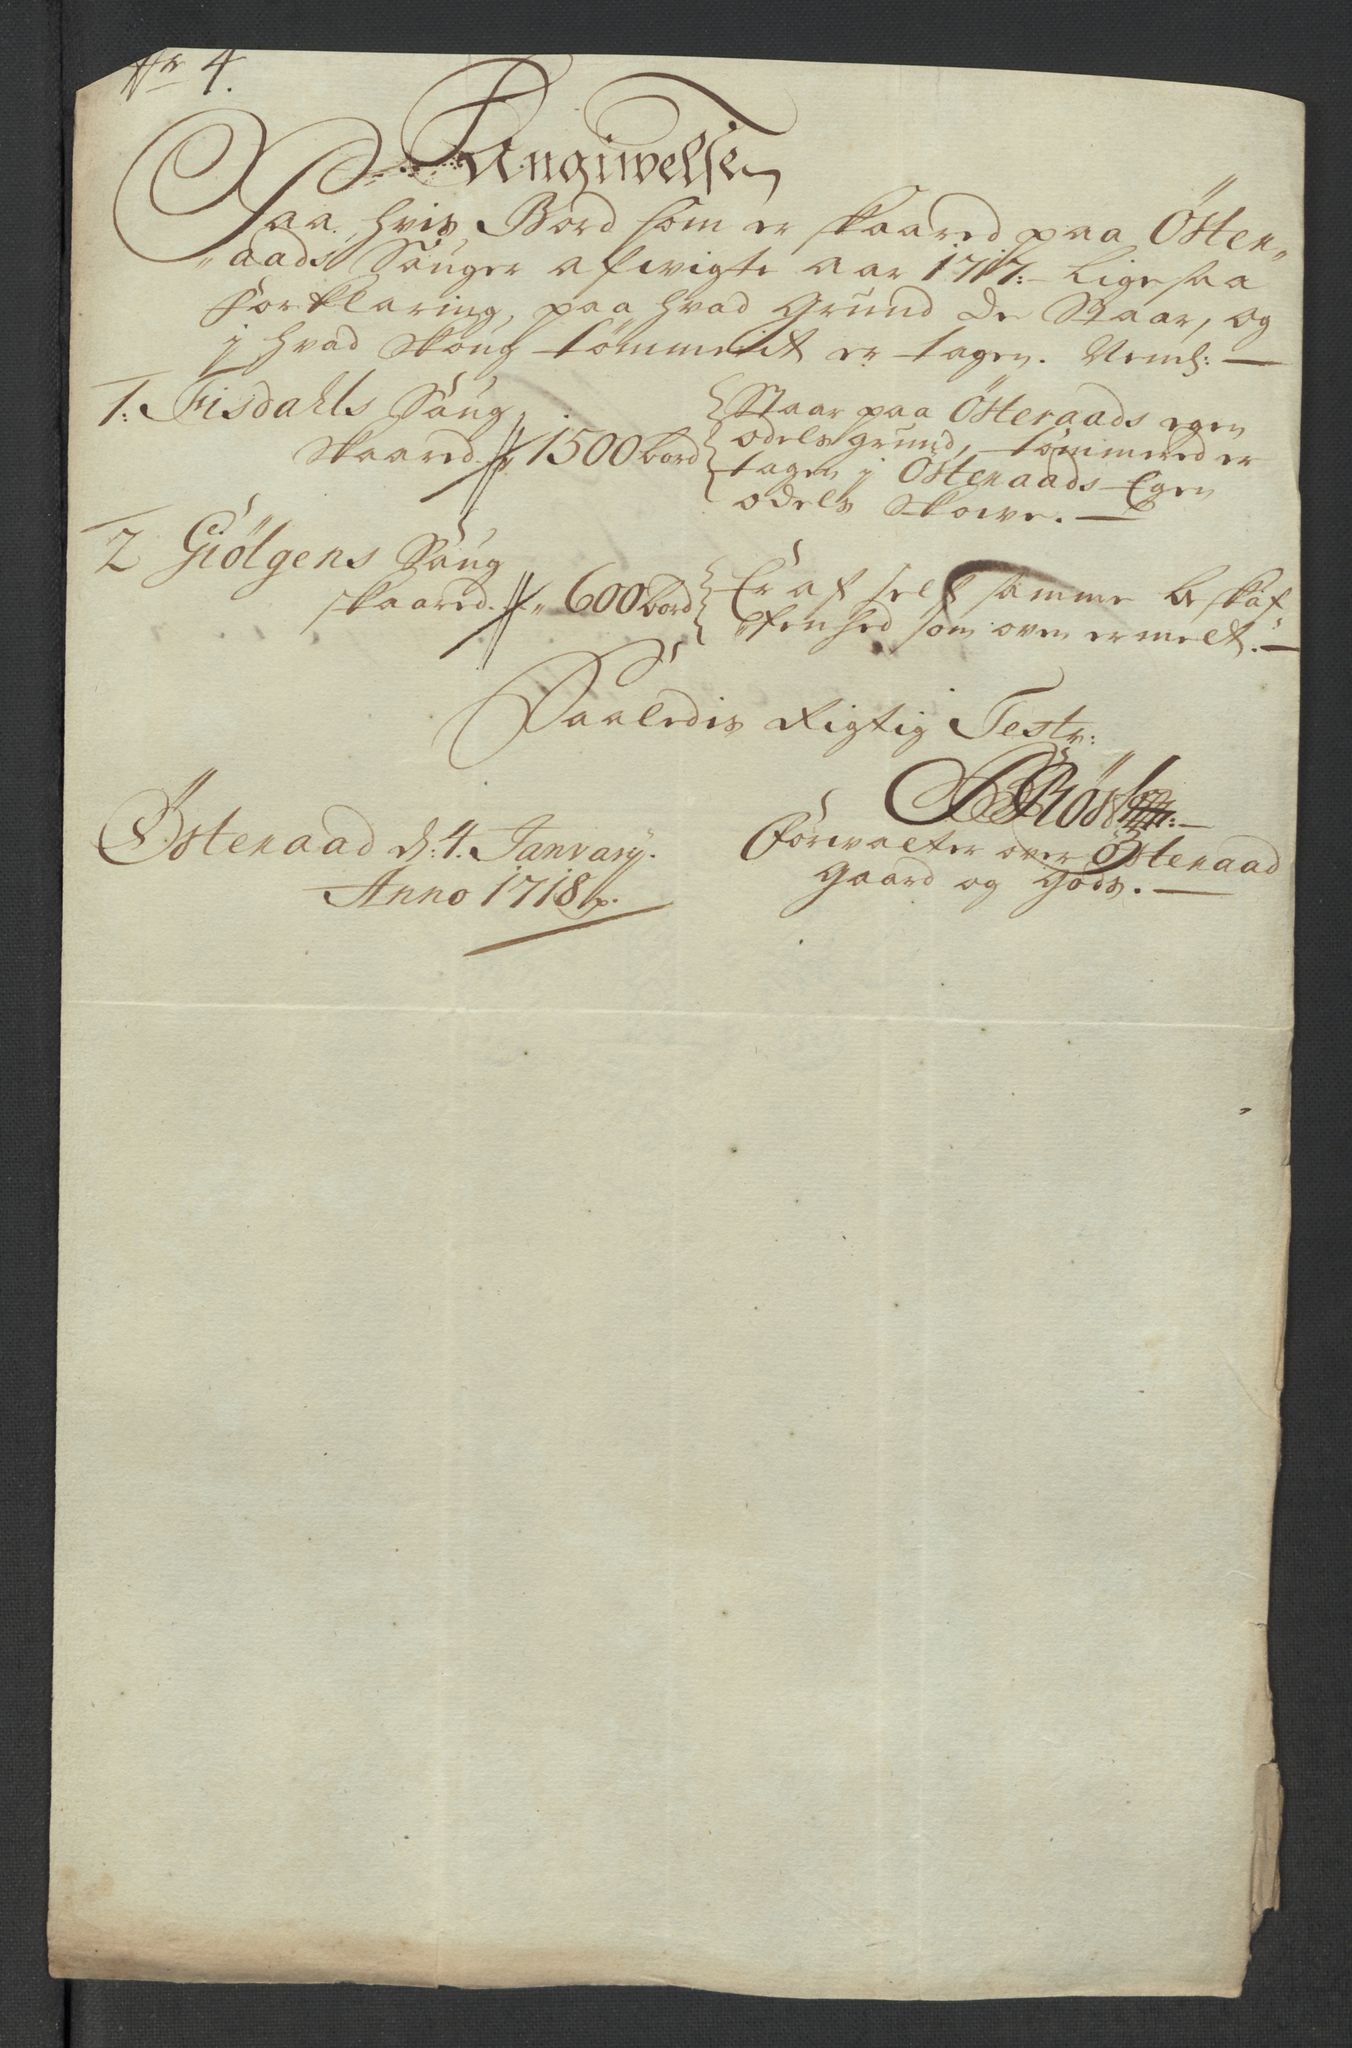 Nr 4.
Angiwelse
Paa, hvis Bord som er skaared paa Östen„
„aads Sauger afwigte aar 1717:– Ligesaa
Forklaring, paa hvad Grund de Staar, og
j hvad Skoug tömmeret er tagen. Neml: —
1: Fisdahls Saug
Skaared 1500 bord
Staar paa Österaads egen
odels grund, tömmered er
tagen j Östenaads Egen
odels Skowe. —
2 Giölgens Saug
skaared 600 bord
Er af self samme beskaf„
„fenhed som oven ermelt. —
Saaledis Rigtig Test:
Östenaad d: 4. Janvarij.
Anno 1718
Forwalter over Östenaad
Gaard og Gods. —